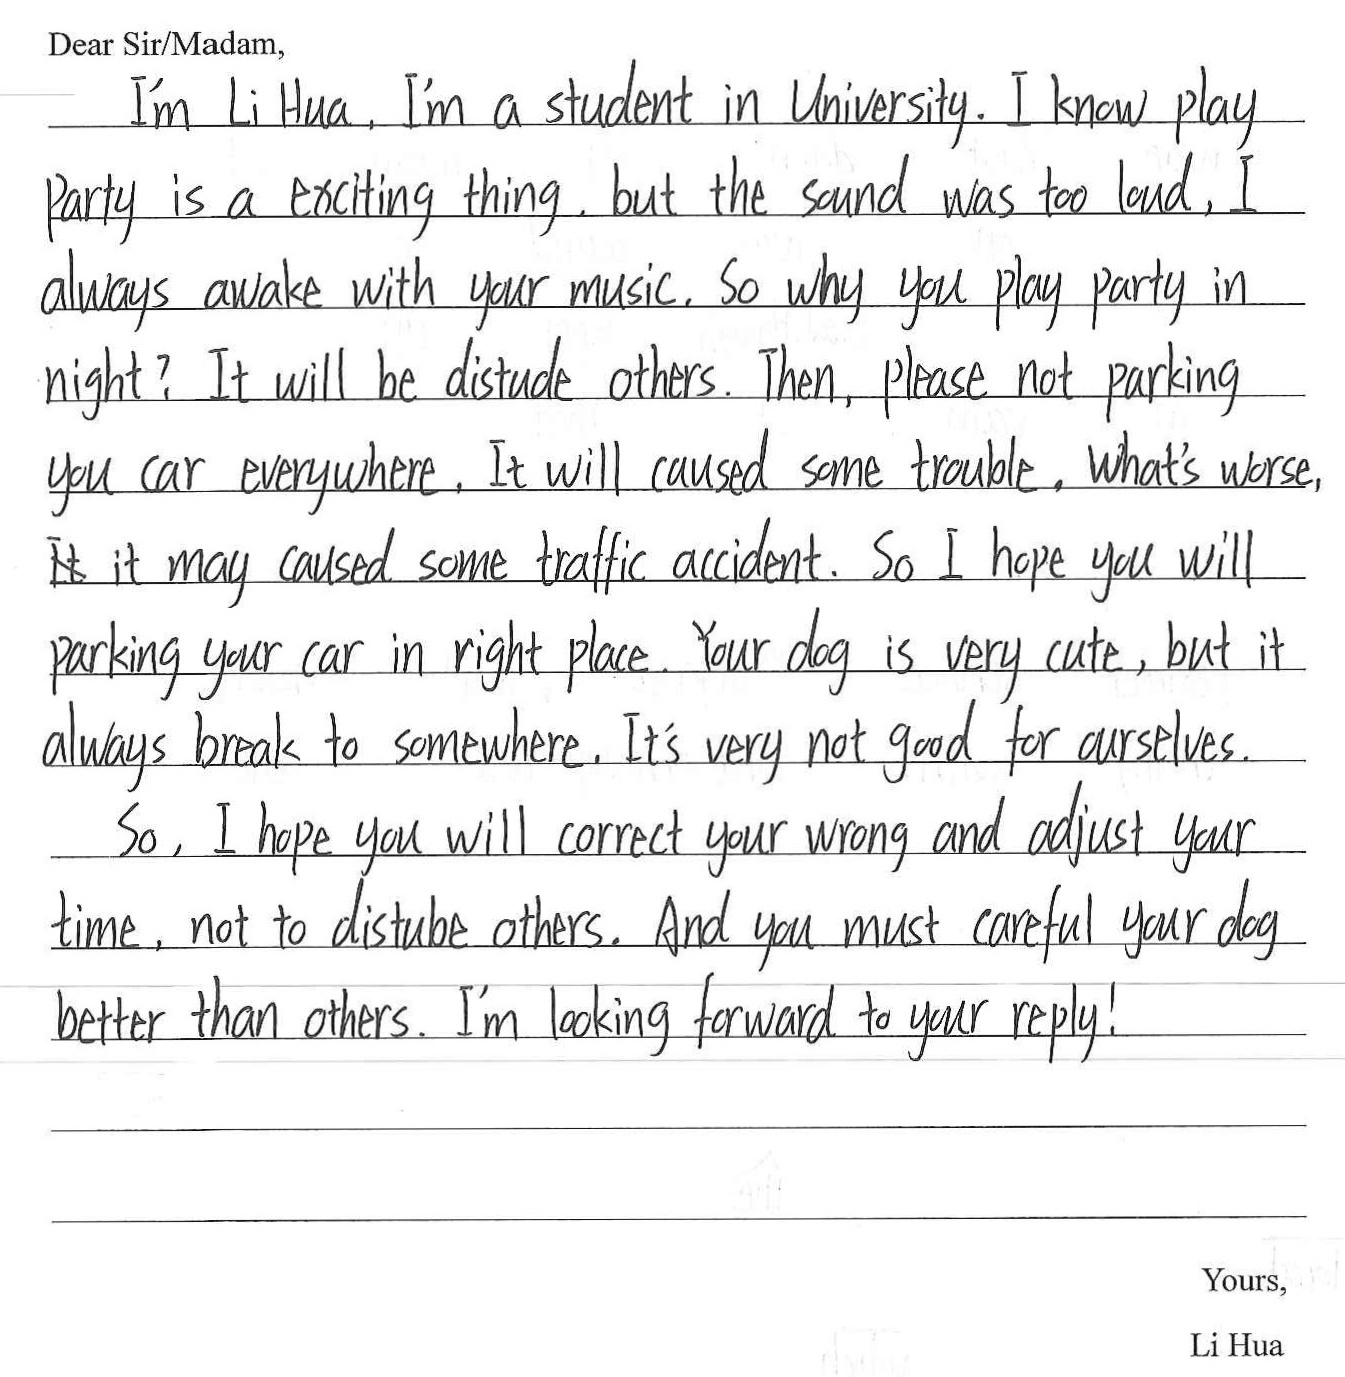 Dear Sir/Madam,
I'm Li Hua. I'm a student in University. I know play
party is a exciting thing. but the sound was too loud, I
always awake with your music. So why you play party in
night? It will be distude others. Then, please not parking
you car everywhere. It will caused some trouble. What's worse,
It it may caused some traffic accident. So I hope you will
parking your car in right place. Your dog is very cute, but it
always break to somewhere. It's very not good for ourselves.
So, I hope you will correct your wrong and adjust your
time, not to distube others. And you must careful your dog
better than others. I'm looking forward to your reply!
Yours,
Li Hua